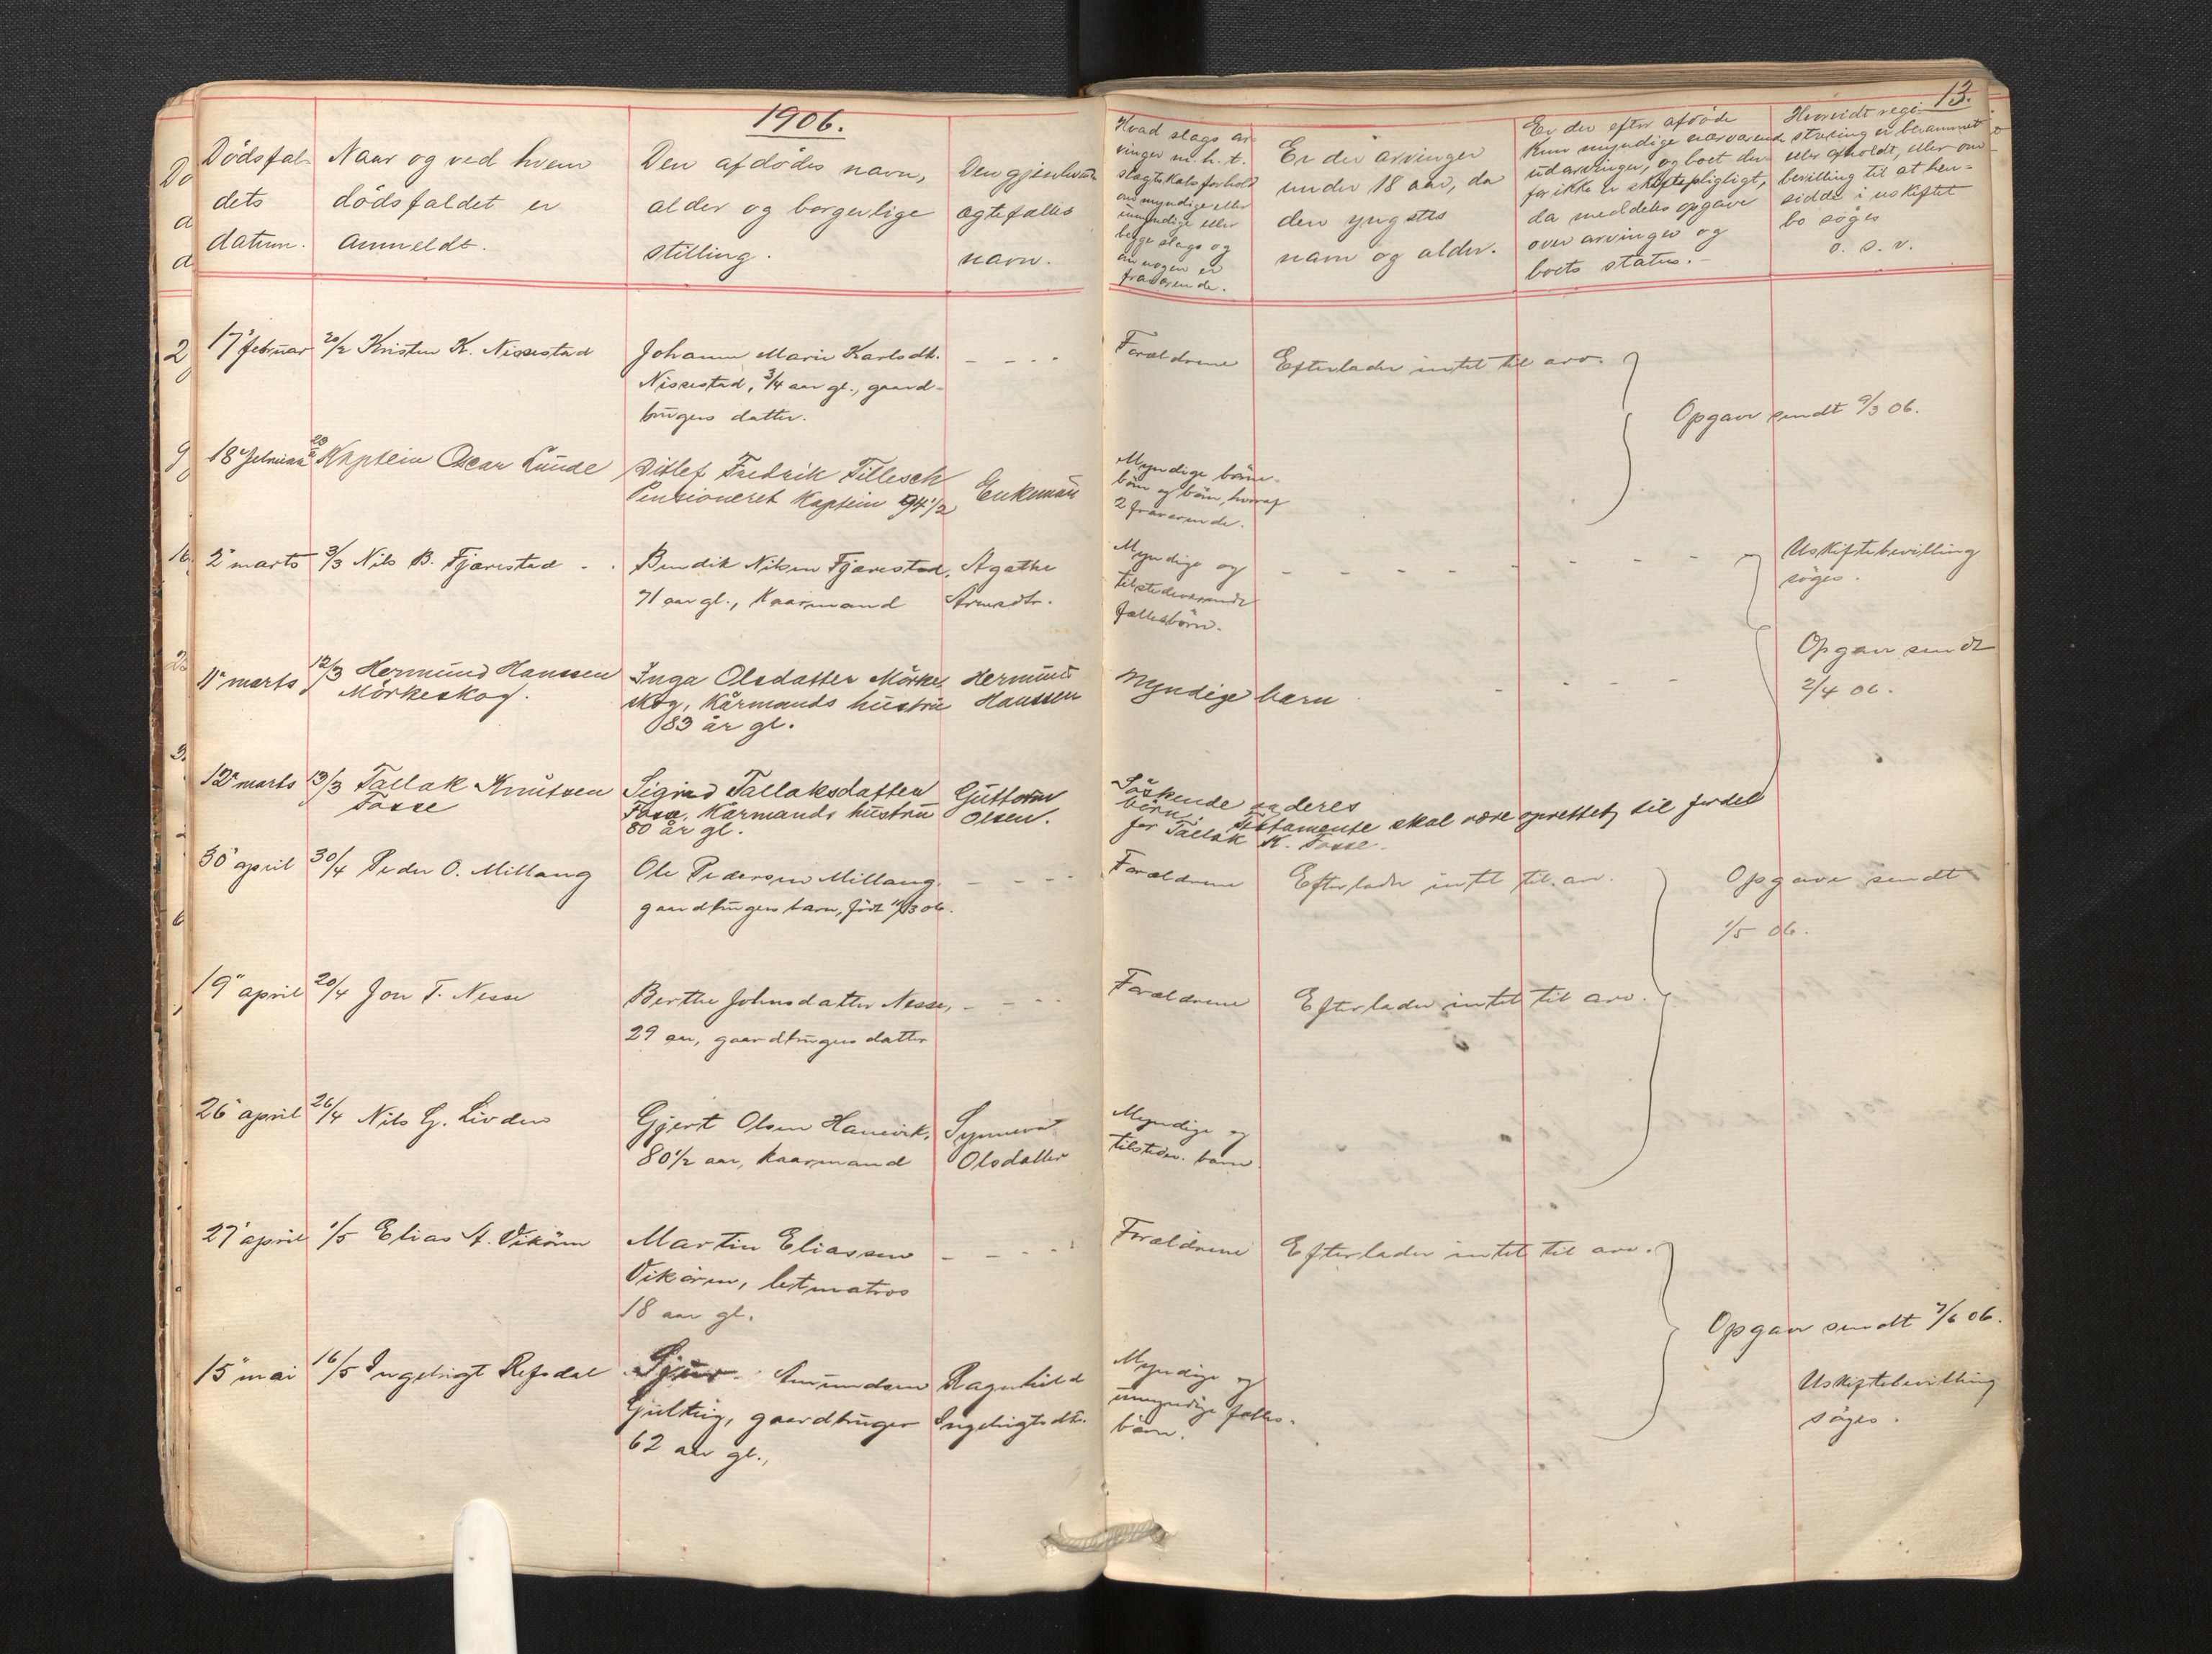 1906.
13.
Dödsfal-
dets
datum.
Naar og ved hvem
dödsfaldet er
anmeldt.
Den afdödes navn,
alder og borgerlige
stilling.
Den gjenlevende
ægtefælles
navn.
Hvad slags ar-
vinger m. h. t.
slægtskabsforhold
om myndige eller
umyndige eller
begge slags og
om nogen er
fraværende.
Er der arvinger
under 18 aar, da
den yngstes
navn og alder.
Er der efter afdöde
kun myndige nærværende
udarvinger, og boet der-
for ikke er skiftepligtigt,
da meddeles opgave
over arvinger og
boets status.-
Hvorvidt regi-
strering er berammet
eller afholdt, eller om
bevilling til at hen-
sidde i uskiftet
bo söges
o. s. v.
17 februar 20/2 Kristen K. Nissestad
Johanne Marie Karlsdtr.
Nissestad, 3/4 aar gl., gaard-
brugers datter.
Forældrene Efterlader intet til arv.
Opgave sendt 9/3 06.
18 februar Kaptein Oscar Lunde
Ditlef Fredrik Tillesch
Pensioneret Kaptein 94 1/2
Enkemann
Myndige barne-
börn og börn, hvoraf
2 fraværende.
2 marts 3/3 Nils B. Fjærestad
Bendik Nilsen Fjærestad,
71 aar gl., Kaarmand
Agathe
Arnesdtr.
Myndige og
tilstedeværende
fællesbörn.
Uskiftebevilling
söges.
Opgave sendt
2/4 06.
11 marts 12/3 Hermund Hanssen
Mörkeskog.
Inga Olsdatter Mörke
skog, Kårmands hustru
83 år gl.
Hermund
Hanssen
Myndige barn
12 marts 13/3 Tallak Knutsen
Fosse
Sigrid Tallaksdatter
Fosse, Kårmands hustru
80 år gl.
Guttorm
Olsen.
Söskende og deres
börn. Testamente skal være oprettet til fordel
for Tallak K. Fosse.
30 april 30/4 Peder O. Millang
Ole Pedersen Millang,
gaardbrugers barn, födt 11/3 06.
Forældrene Efterlader intet til arv.
Opgave sendt
1/5 06.
19 april 20/4 Jon T. Nesse
Berthe Johnsdatter Nesse,
29 aar, gaardbrugers datter
Forældrene Efterlader intet til arv.
26 april 26/4 Nils G. Livden
Gjert Olsen Hamevik,
80 1/2 aar, kaarmand
Synneva
Olsdatter
Myndige og
tilstedev. barn
27 april 1/5 Elias A. Vikören
Martin Eliassen
Vikören, letmatros
18 aar gl.
Forældrene Efterlader intet til arv.
Opgave sendt 7/6 06.
15 mai 16/5 Ingebrigt Refsdal
Sjur Amundsen
Gjelting, gaardbruger
62 aar gl.,
Ragnhild
Ingebrigtsdtr.
Myndige og
umyndige fælles-
börn.
Uskiftebevilling
söges.